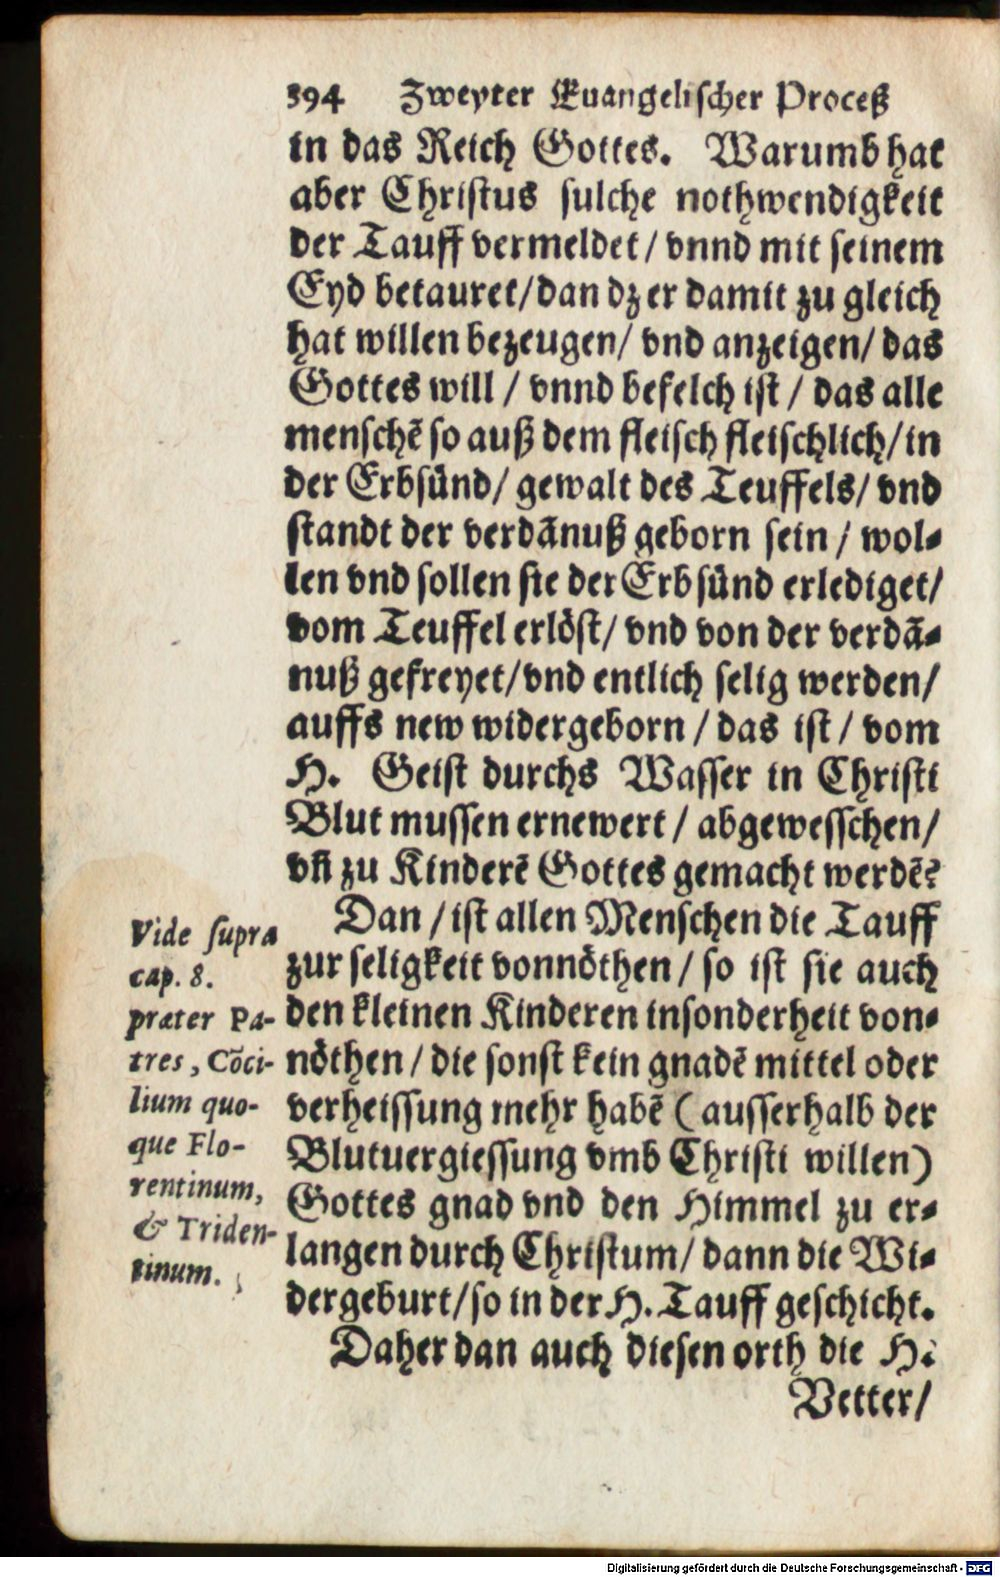 394 Zweyter Euangelischer Proceß
in das Reich Gottes. Warumb hat
aber Christus sulche nothwendigkeit
der Tauff vermeldet / vnnd mit seinem
Eyd betauret / dan dz er damit zu gleich
hat willen bezeugen / vnd anzeigen / das
Gottes will / vnnd befelch ist / das alle
menschē so auß dem fleisch fleischlich / in
der Erbsünd / gewalt des Teuffels / vnd
standt der verdānuß geborn sein / wol-
len vnd sollen sie der Erbsünd erlediget /
vom Teuffel erlöst / vnd von der verdā-
nuß gefreyet / vnd entlich selig werden /
auffs new widergeborn / das ist / vom
H. Geist durchs Wasser in Christi
Blut mussen ernewert / abgewesschen /
vñ zu Kinderē Gottes gemacht werdē?
Dan / ist allen Menschen die Tauff
zur seligkeit vonnöthen / so ist sie auch
den kleinen Kinderen insonderheit von-
nöthen / die sonst kein gnadē mittel oder
verheissung mehr habē (ausserhalb der
Blutuergiessung vmb Christi willen)
Gottes gnad vnd den Himmel zu er-
langen durch Christum / dann die Wi-
dergeburt / so in der H. Tauff geschicht.
Daher dan auch diesen orth die H.
Vetter /
Vide supra
cap. 8.
præter Pa-
tres, Cōci-
lium quo-
que Flo-
rentinum,
& Triden-
tinum.
Digitalisierung gefördert durch die Deutsche Forschungsgemeinschaft - DFG